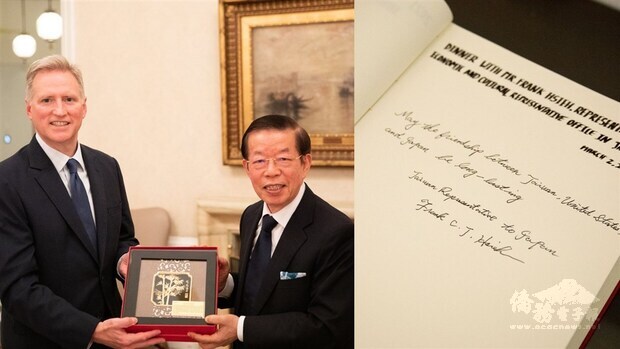 DINNER WITH MR. FRANK HSIEH, REPRESENT
ECONOMIC AND CULTURAL REPRESENTATIVE OFFICE IN JA
MARCH 2.
May the friendship between Taiwan-United States
and Japan be long-lasting
Taiwan Representative to Japan
Frank C. T. Hsieh
僑務電子報
www.ocacnews.net